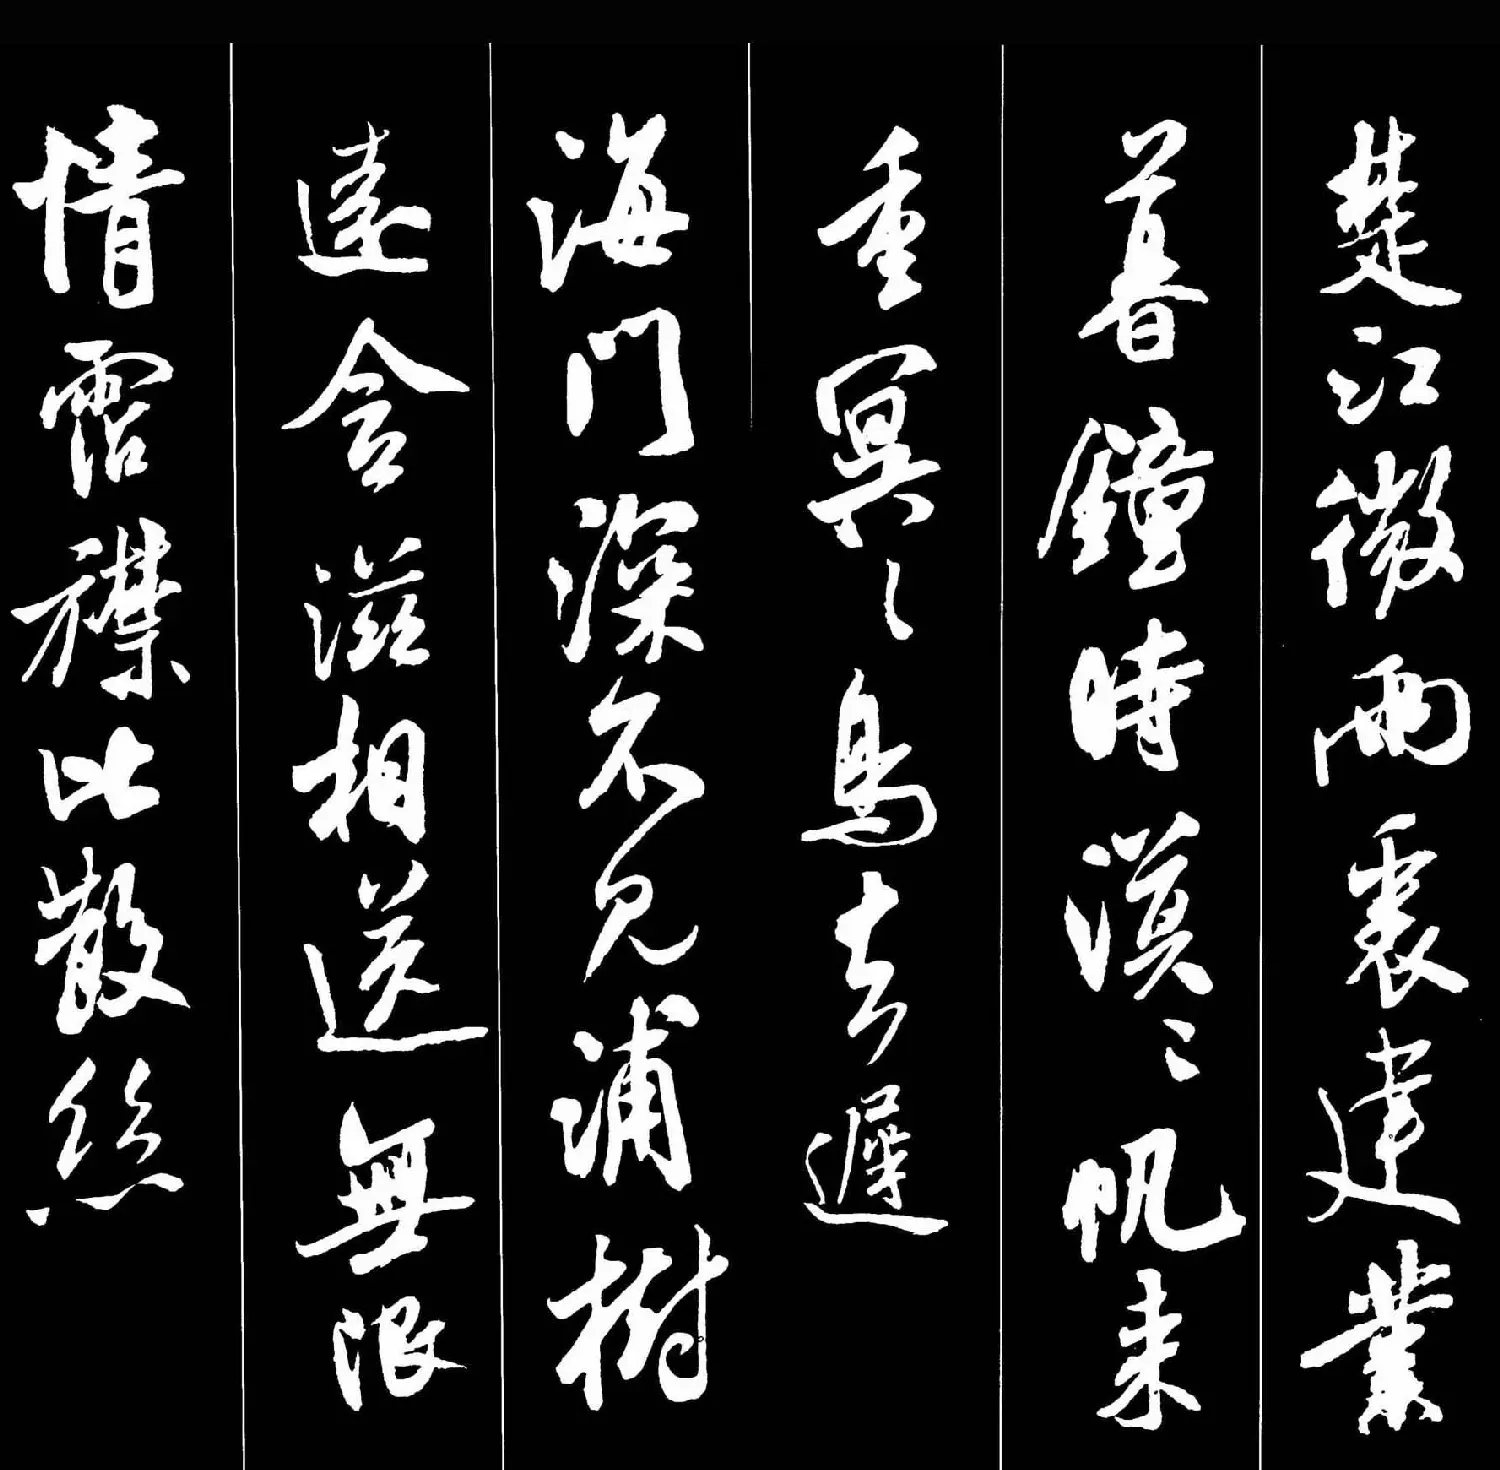 楚江微雨裏建業
暮鐘時漠々帆来
重冥々鳥去遲
海門深不見浦樹
遠含滋相送無限
情霑襟比散絲